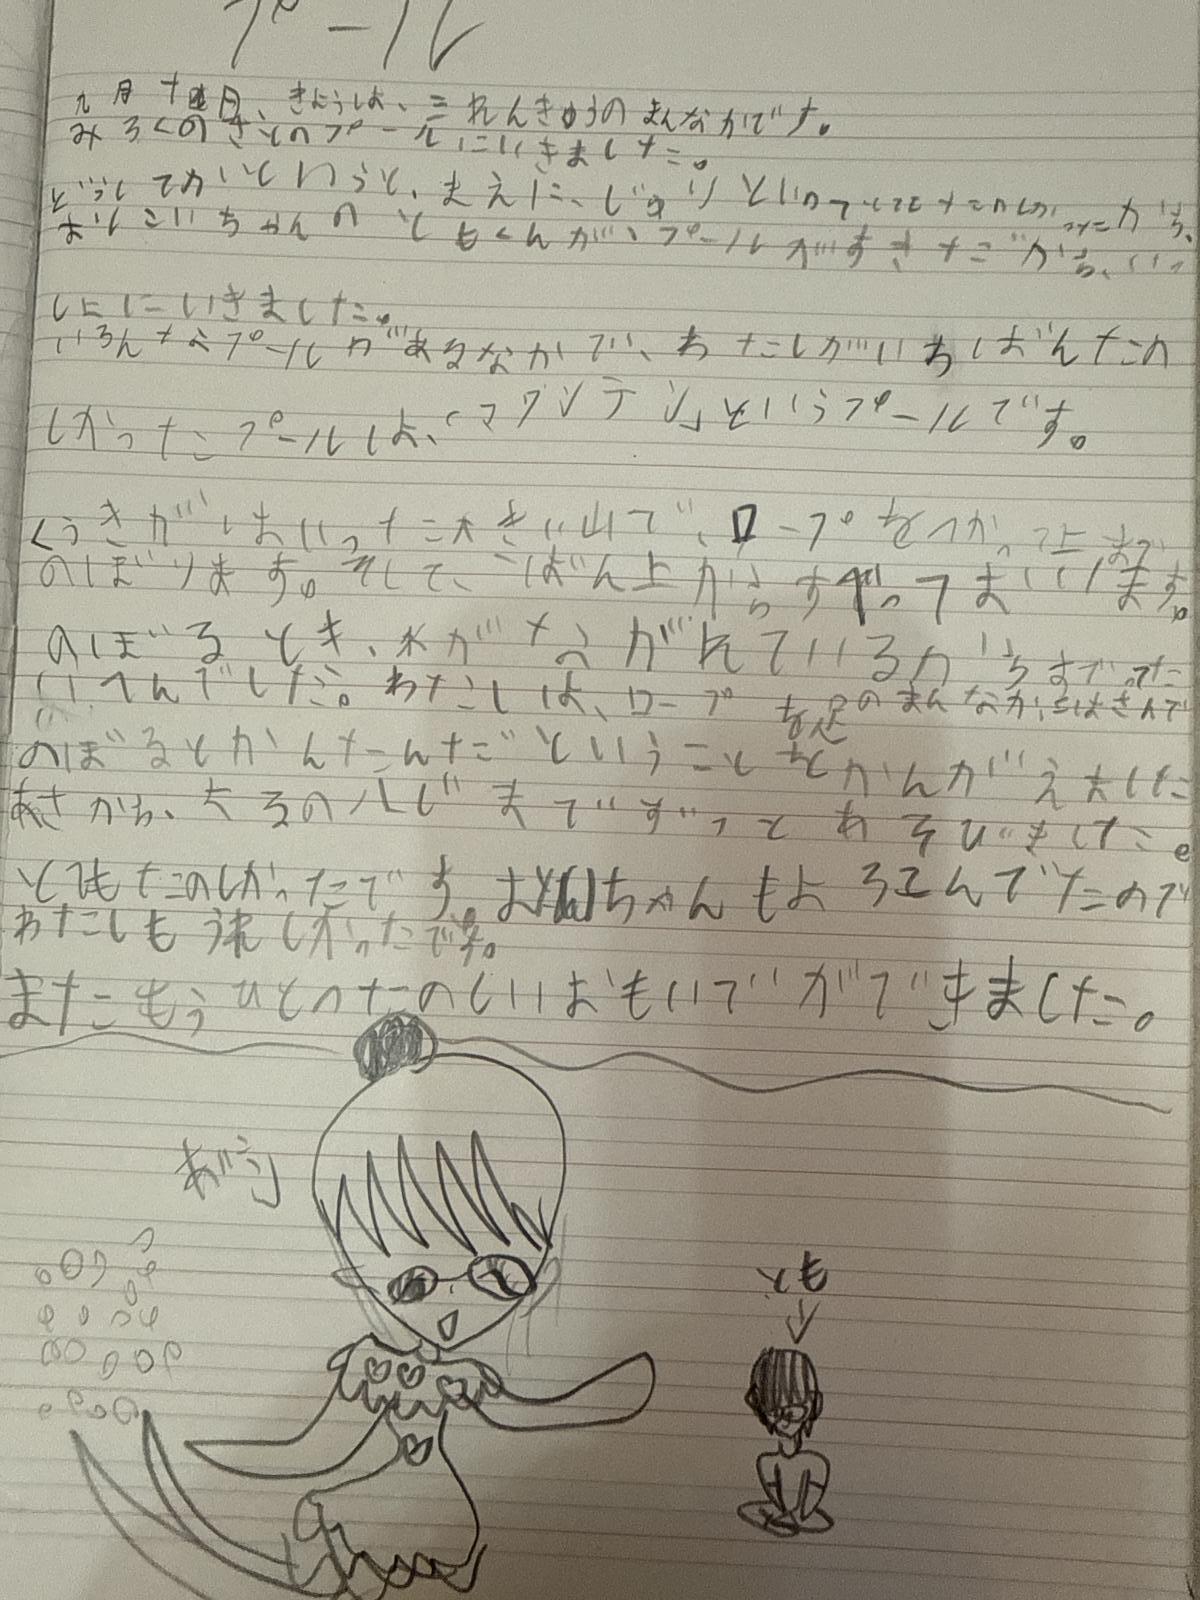 プール
九月十四日、きのうは、三れんきゅうのまんなかです。
みろくのさとのプールにいきました。
どうしてかというと、まえに、じゅりといってたのしかったから、
おにいちゃんのともくんが、プールがすきだから、いっ
しょにいきました。
いろんなプールがあるなかで、わたしがいちばんたの
しかったプールは、「マウンテン」というプールです。
くうきがはいった大きい山で、ロープをつかって上まで
のぼります。そして、いちばん上からすべってまいります。
のぼるとき、水がながれているからすべった
いへんでした。わたしは、ロープを足のまんなかにはさんで
のぼるとかんたんだということをかんがえました
あさから、よるの八じまでずっとあそびました。
とてもたのしかったです。おにいちゃんもよろこんでたので
わたしもうれしかったです。
またもうひとつたのしいおもいでができました。
とも